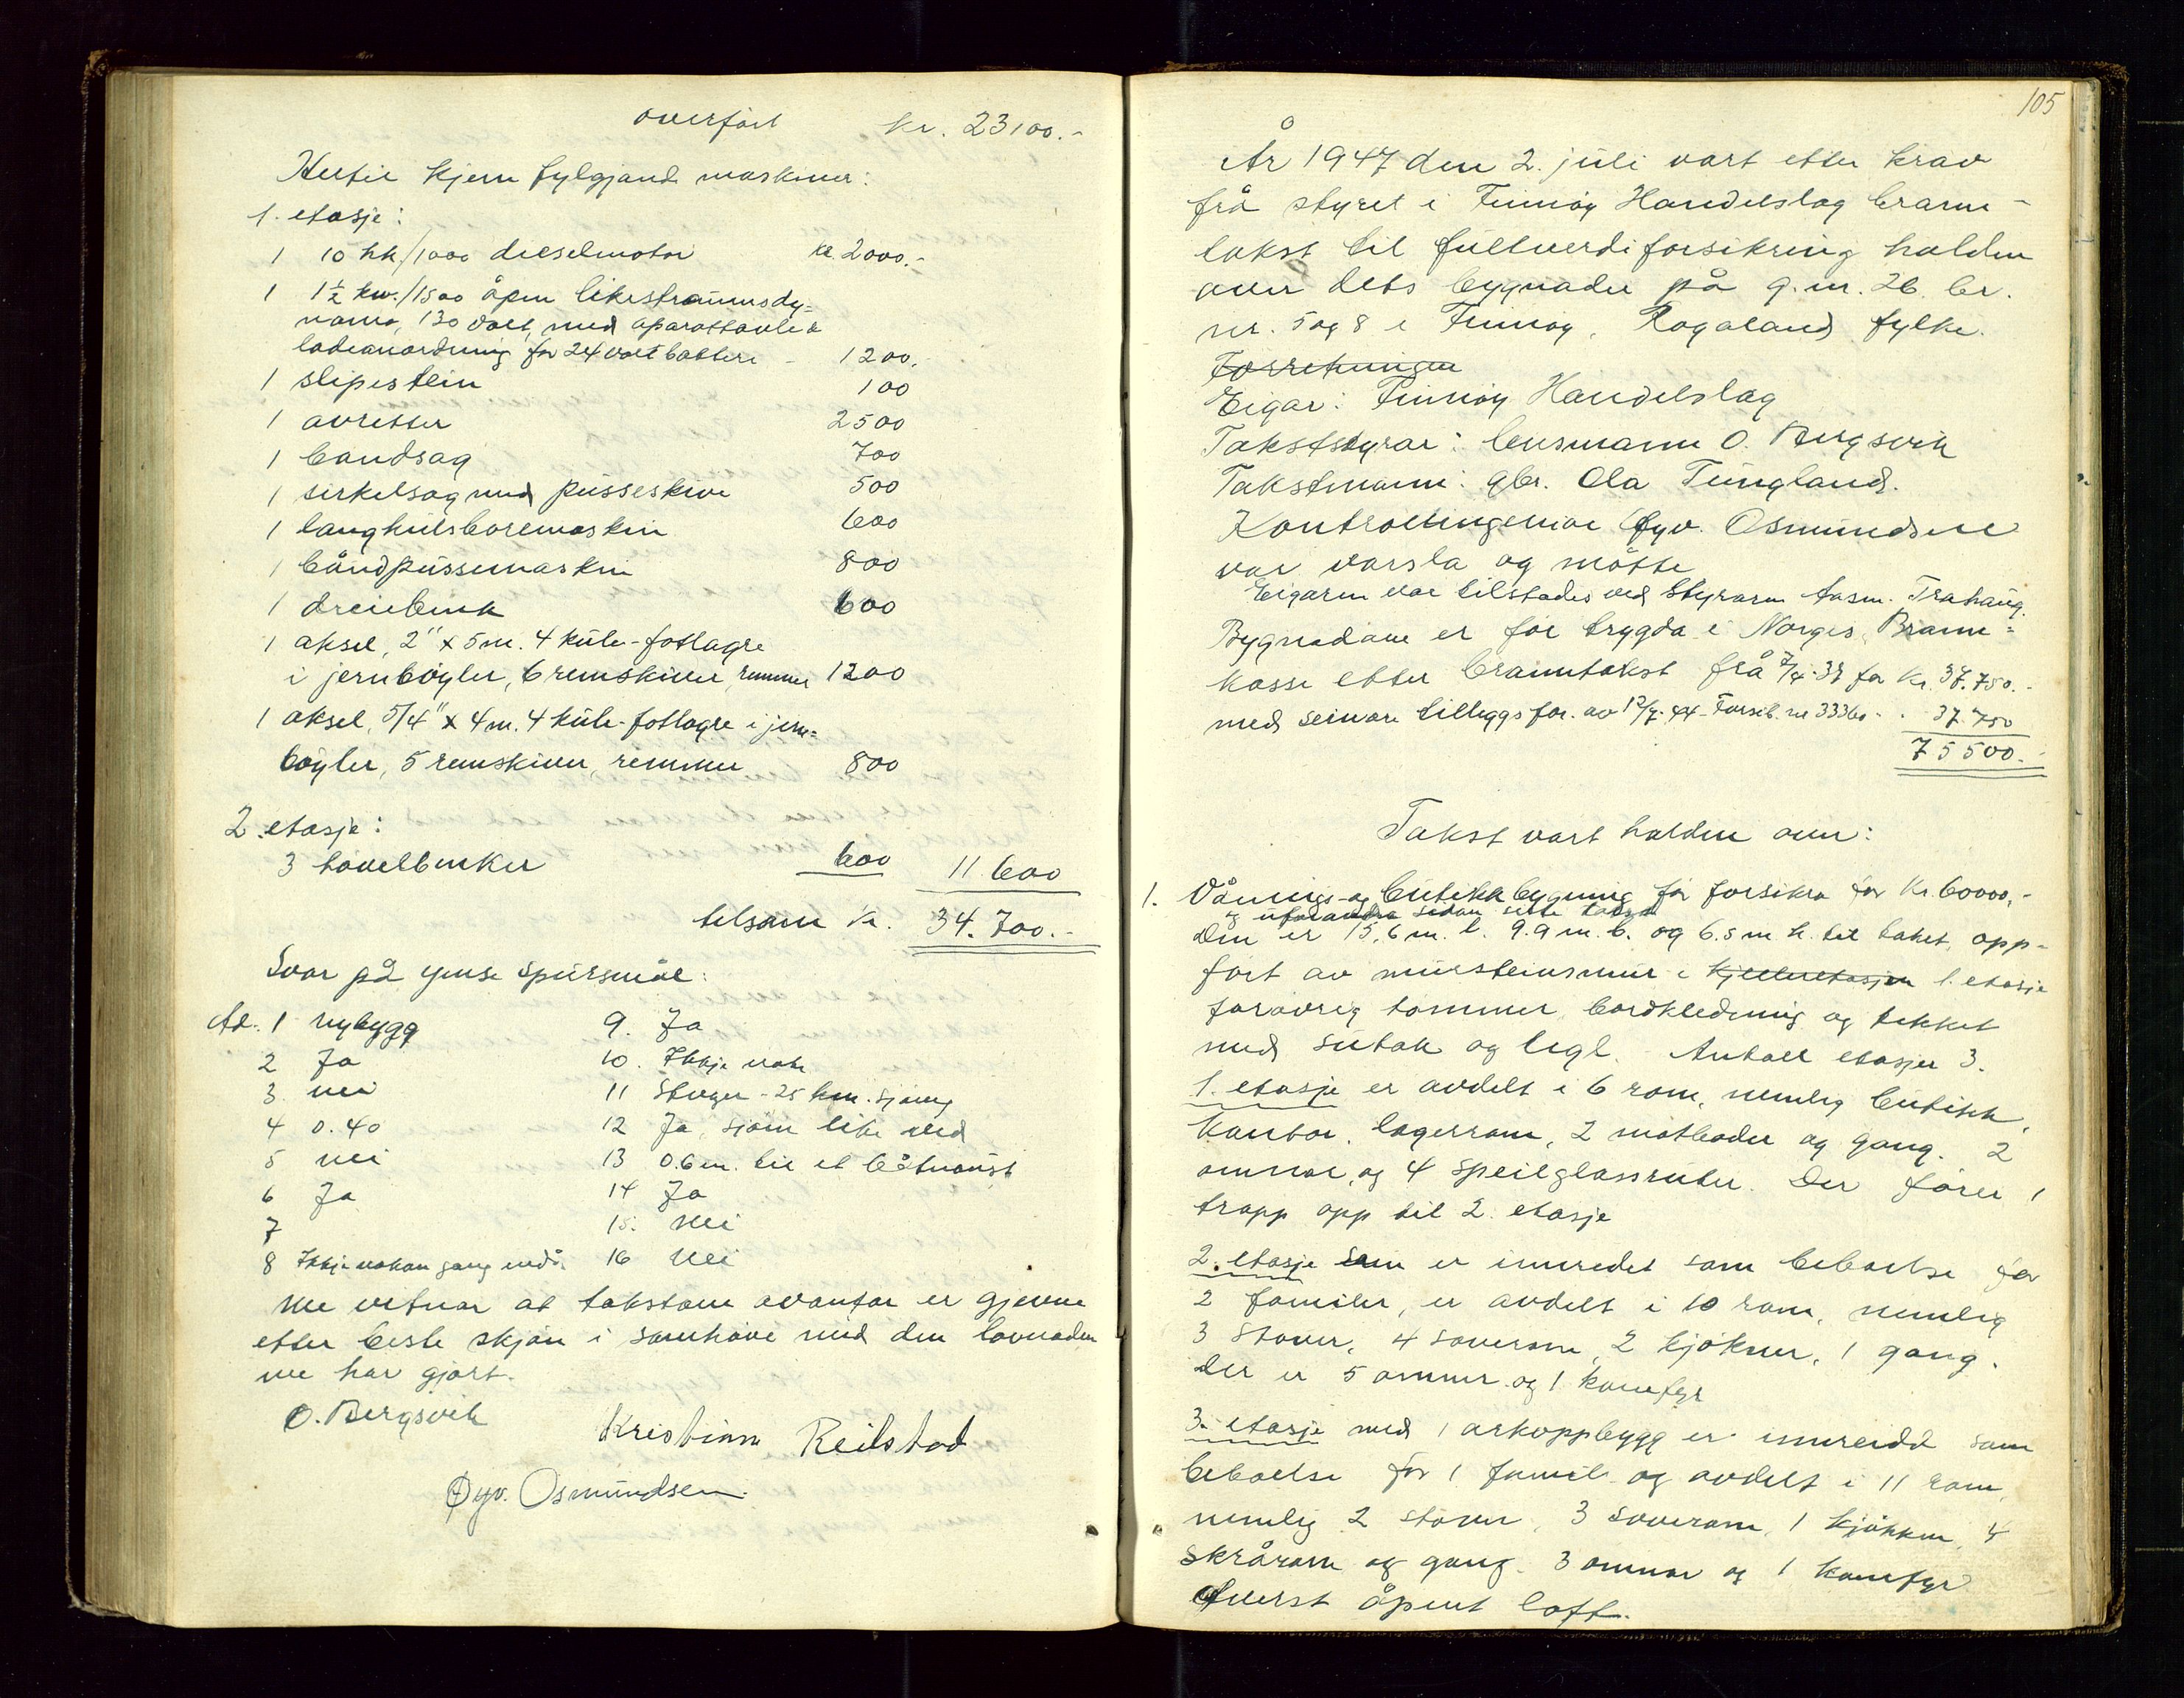 overført kr. 23100.-
Hertil kjem fylgjande maskiner:
1. etasje:
1 10 hk./1000 dieselmotor kr. 2000.-
1 1½ kw./1500 åpen likestraumsdy-
namo, 130 volt, med aparattavle &
ladeanordning for 24 volt batteri - 1200.-
1 slipestein 100
1 avretter 2500
1 bandsag 700
1 sirkelsag med pusseskive 500
1 langhulsboremaskin 600
1 båndpussemaskin 800
1 dreiebenk 600
1 aksel, 2" x 5 m. 4 kule-fotlagre
i jernbøyler, 6 remskiver, remmer 1200
1 aksel, 5/4" x 4 m. 4 kule-fotlagre i jern-
bøyler, 5 remskiver, remmer 800
2. etasje:
3 høvelbenker 600 11.600
tilsam kr. 34.700.-
Svar på ymse spursmål:
Ad. 1 nybygg
2 Ja
3. nei
4 0.40
5 nei
6 Ja
7
8 Ikkje nokon gong ennå
9. Ja
10. Ikkje noko
11 Stvgr. - 25 km. sjøveg
12 Ja, sjøen like ved
13 0.6 m. til et båtnaust
14 Ja
15. nei
16 nei
Me vitnar at takstane ovanfor er gjevne
etter beste skjøn i samhøve med den lovnaden
me har gjort.
O. Bergsvik Kristian Reilstad
Øyv. Osmundsen.
105
År 1947 den 2. juli vart etter krav
frå styret i Finnøy Handelslag brann-
takst til fullverdiforsikring halden
over dets bygnader på g.nr. 26 br.
nr. 5 og 8 i Finnøy, Rogaland fylke.
Forretningen
Eigar: Finnøy Handelslag
Takststyrar: lensmann O. Bergsvik
Takstmann: gbr. Ola Tungland.
Kontrollingeniør Øyv. Osmundsen
var varsla og møtte
Eigaren var tilstades ved styraren Rasm. Trahaug.
Bygnadane er før trygda i Norges Brann-
kasse etter branntakst frå 7/4-37 for kr. 37.750.-
med seinare tilleggsfor. av 12/7-44 - Forsik. nr 33360 - - 37.750
75500.-
Takst vart halden over:
1. Vånings- og butikkbygning før forsikra for kr. 60000.-
og uforandra sidan siste takst
Den er 15,6 m. l. 9.9 m. b. og 6.5 m. h. til taket, opp-
ført av mursteinsmur i kjelleretasjen 1. etasje
forøvrig tømmer, bordkledning og tekket
med sutak og tegl. Antall etasjer 3.
1. etasje er avdelt i 6 rom, nemlig butikk,
kontor, lagerrom, 2 matboder og gang. 2
omnar, og 4 speilglassruter. Der fører 1
trapp opp til 2. etasje
2. etasje som er innredet som beboelse for
2 familer, er avdelt i 10 rom, nemlig
3 stover, 4 soverom, 2 kjøkner, 1 gang.
Der er 5 omner og 1 komfyr
3. etasje med 1 arkoppbygg er innreidd som
beboelse for 1 famil. og avdelt i 11 rom,
nemlig 2 stover, 3 soverom, 1 kjøkken, 4
skrårom og gang. 3 omnar og 1 komfyr
Øverst åpent loft.